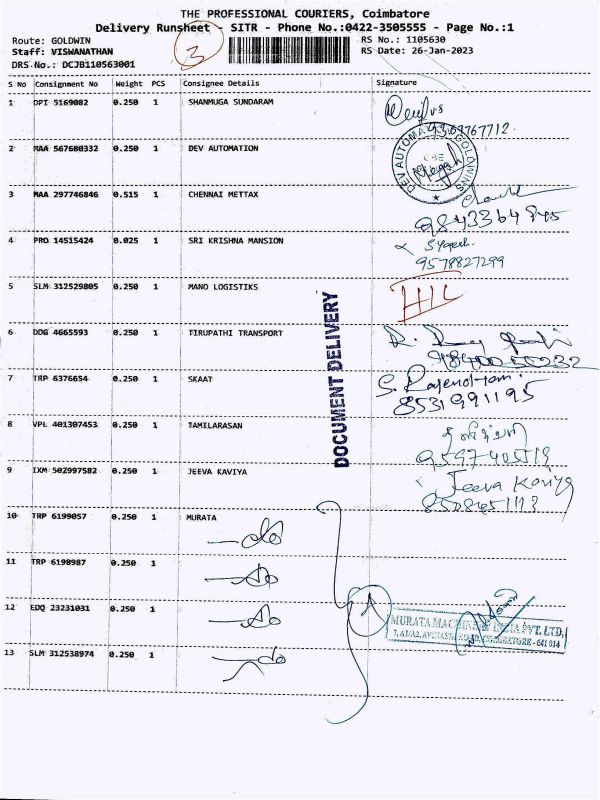 THE PROFESSIONAL COURIERS, Coimbatore
Delivery Runsheet - SITR - Phone No.:0422-3505555 - Page No.:1
Route: GOLDWIN
Staff: VISWANATHAN
DRS No.: DCJB110563001
3
RS No.: 1105630
RS Date: 26-Jan-2023
S No Consignment No Weight PCS Consignee Details Signature
1 DPI 5169082 0.250 1 SHANMUGA SUNDARAM
2 MAA 567680332 0.250 1 DEV AUTOMATION
DEV AUTOMA GOLDWINS
CBE
3 MAA 297746846 0.515 1 CHENNAI METTAX
9843364845
4 PRO 14515424 0.025 1 SRI KRISHNA MANSION
9578827299
5 SLM 312529805 0.250 1 MANO LOGISTIKS
H/L
6 DDG 4665593 0.250 1 TIRUPATHI TRANSPORT
7 TRP 6376654 0.250 1 SKAAT
S. Rajendran
8531991195
8 VPL 401307453 0.250 1 TAMILARASAN
9 IXM 502997582 0.250 1 JEEVA KAVIYA
Jeeva Kaviya
10 TRP 6199057 0.250 1 MURATA
-do
11 TRP 6198987 0.250 1
-do
12 EDQ 23231031 0.250 1
-do
13 SLM 312538974 0.250 1
-do
DOCUMENT DELIVERY
MURATA MACHINERY INDIA PVT. LTD.
7, A1/A2, AVINASHI ROAD, COIMBATORE - 641 014